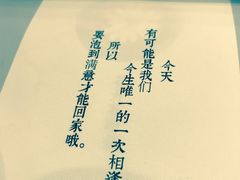 今天
有可能是我们
今生唯一的一次相逢
所以
要泡到满意才能回家哦。